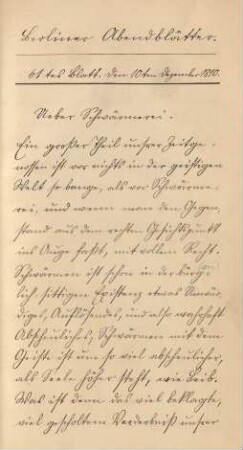 Berliner Abendblätter.
61tes Blatt. Den 10ten Dezember 1810.
Ueber Schwärmerei.
Ein großer Theil unsrer Zeitge-
nossen ist vor nichts in der geistigen
Welt so bange, als vor Schwärme-
rei, und wenn man den Gegen-
stand aus dem rechten Gesichtspunkt
ins Auge faßt, mit vollem Recht.
Schwärmen ist schon in der bürger-
lich-sittigen Existenz etwas Unwür-
diges, Auflösendes, und also wahrhaft
Abscheuliches, Schwärmen mit dem
Geiste ist um so viel abscheulicher,
als Seele höher steht, wie Leib.
Was ist denn das viel beklagte,
viel gescholtene Verderbniß unsrer